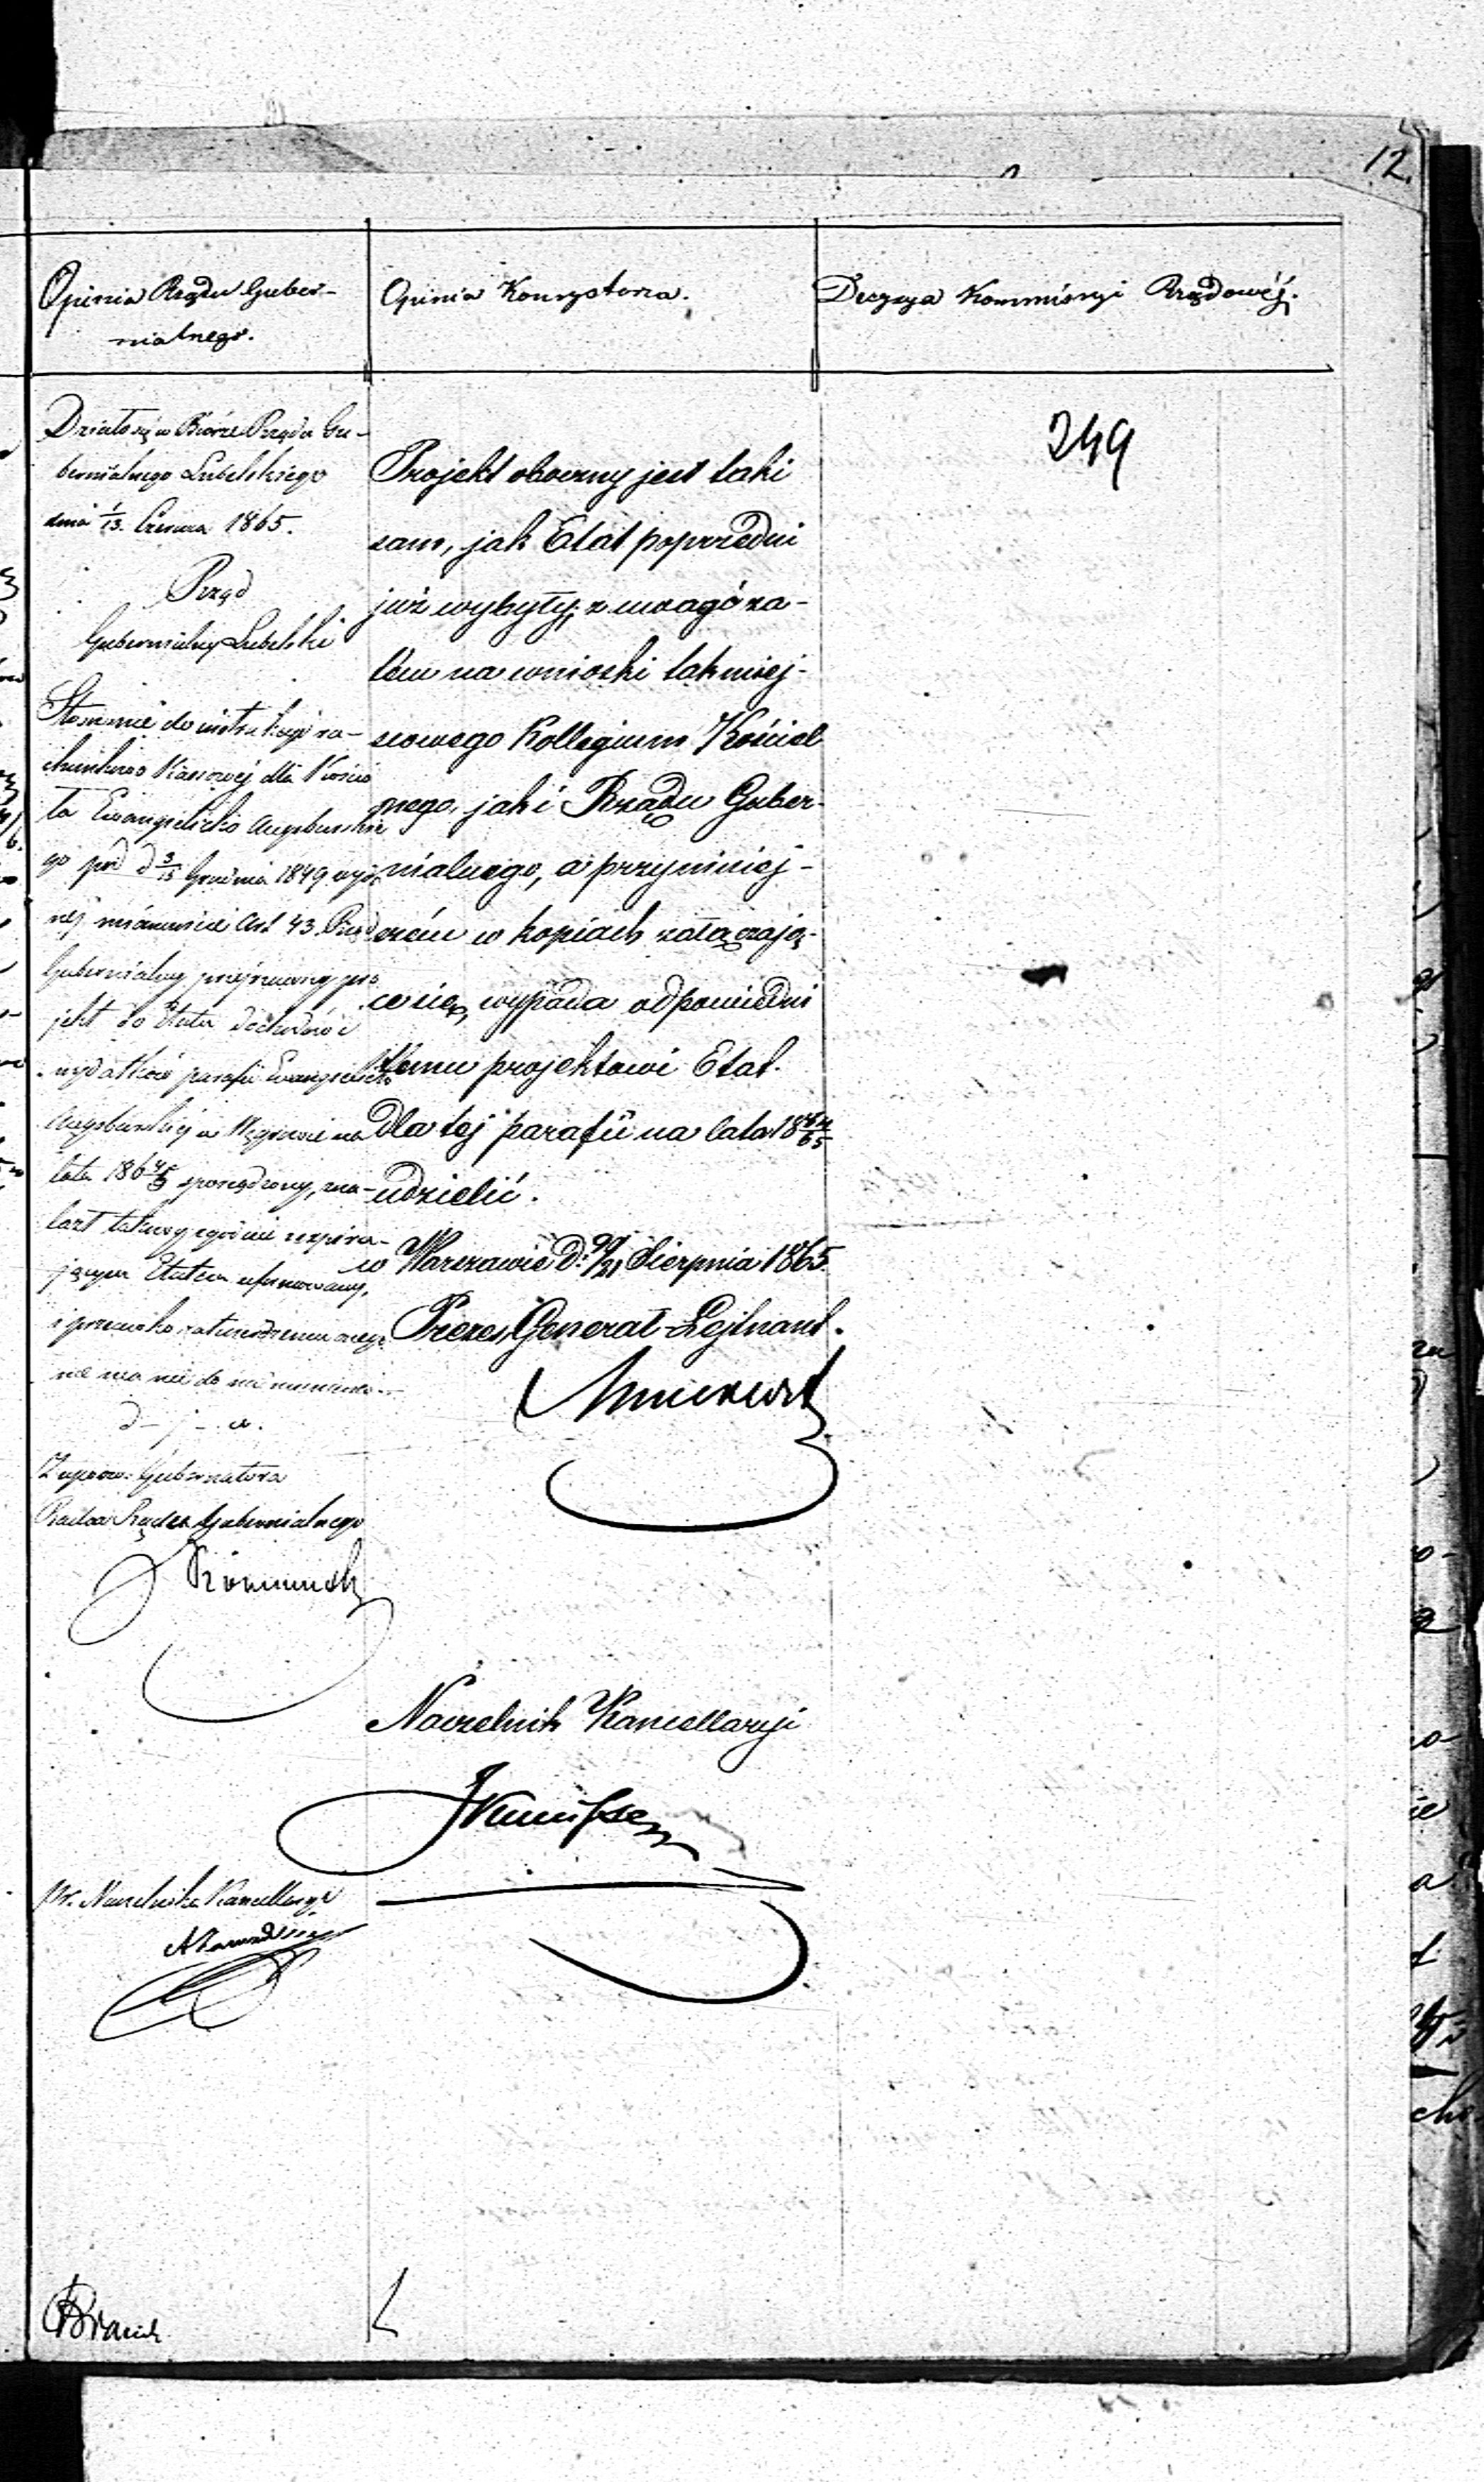 12.
Opinia Rządu Guber-
nialnego.
Opinia Konsystorza.
Decyzya Kommissyi Rządowéj.
Działo się w Biórze Rządu Gu-
bernialnego Lubelskiego
dnia 1/13. Czerwca 1865.
Rząd
Gubernialny Lubelski
Stosownie do instrukcyi ra-
chunkowo Kassowéj dla Kościo
ła Ewangelicko Augsburskie
go pod d 3/15 Grudnia 1849
néj mianowicie Art 43. Rząd
Gubernialny przejrzawszy pro
jekt do Etatu dochodów i
wydatków parafii Ewangelicko
Augsburskiej w Węgrowie na
lata sporządzony, zna-
lazł takowy zgodnie z expira-
jącym Etatem uformowany,
i przeciwko zatwierdzeniu onego
nie ma nic do nadmienienia.
Z upow: Gubernatora
Radca Rządu Gubernialnego
Nr. Naczelnika Kancellaryi
Projekt obecny jest taki
sam, jak Etat poprzedni
już wybyły; z uwagi za-
tem na wnioski tak miej-
scowego Kollegium Kościel
nego, jak i Rządu Guber-
nialnego, a przynajmniej-
szém w kopiach załączają-
ce się, wypada odpowiedni
temu projektowi Etat.
dla tej parafii na lata 18
udzielić.
w Warszawie D. 9/21 Sierpnia 1865.
Prezes, Generał-Lejtnant.
Naczelnik Kancellaryi
249